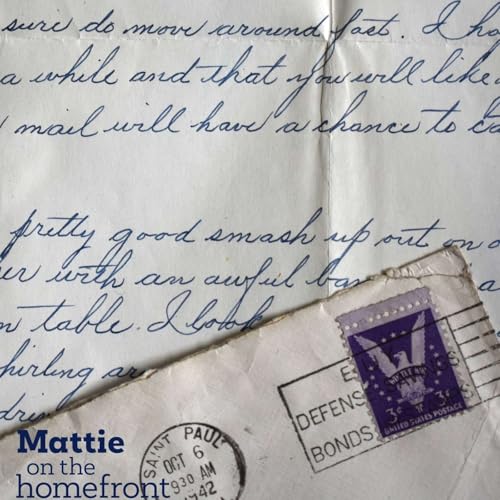 sure do move around fast. I ho
a while and that you will like
mail will have a chance to ca
pretty good smash up out on a
er with an awful ban
n table. I look
hirling ar
drin
DEFENS
BONDS
WIN THE WAR
3¢ 3¢
UNITED STATES POSTAGE
SAINT PAUL
OCT 6
9 30 AM
1942
Mattie
on the
homefront